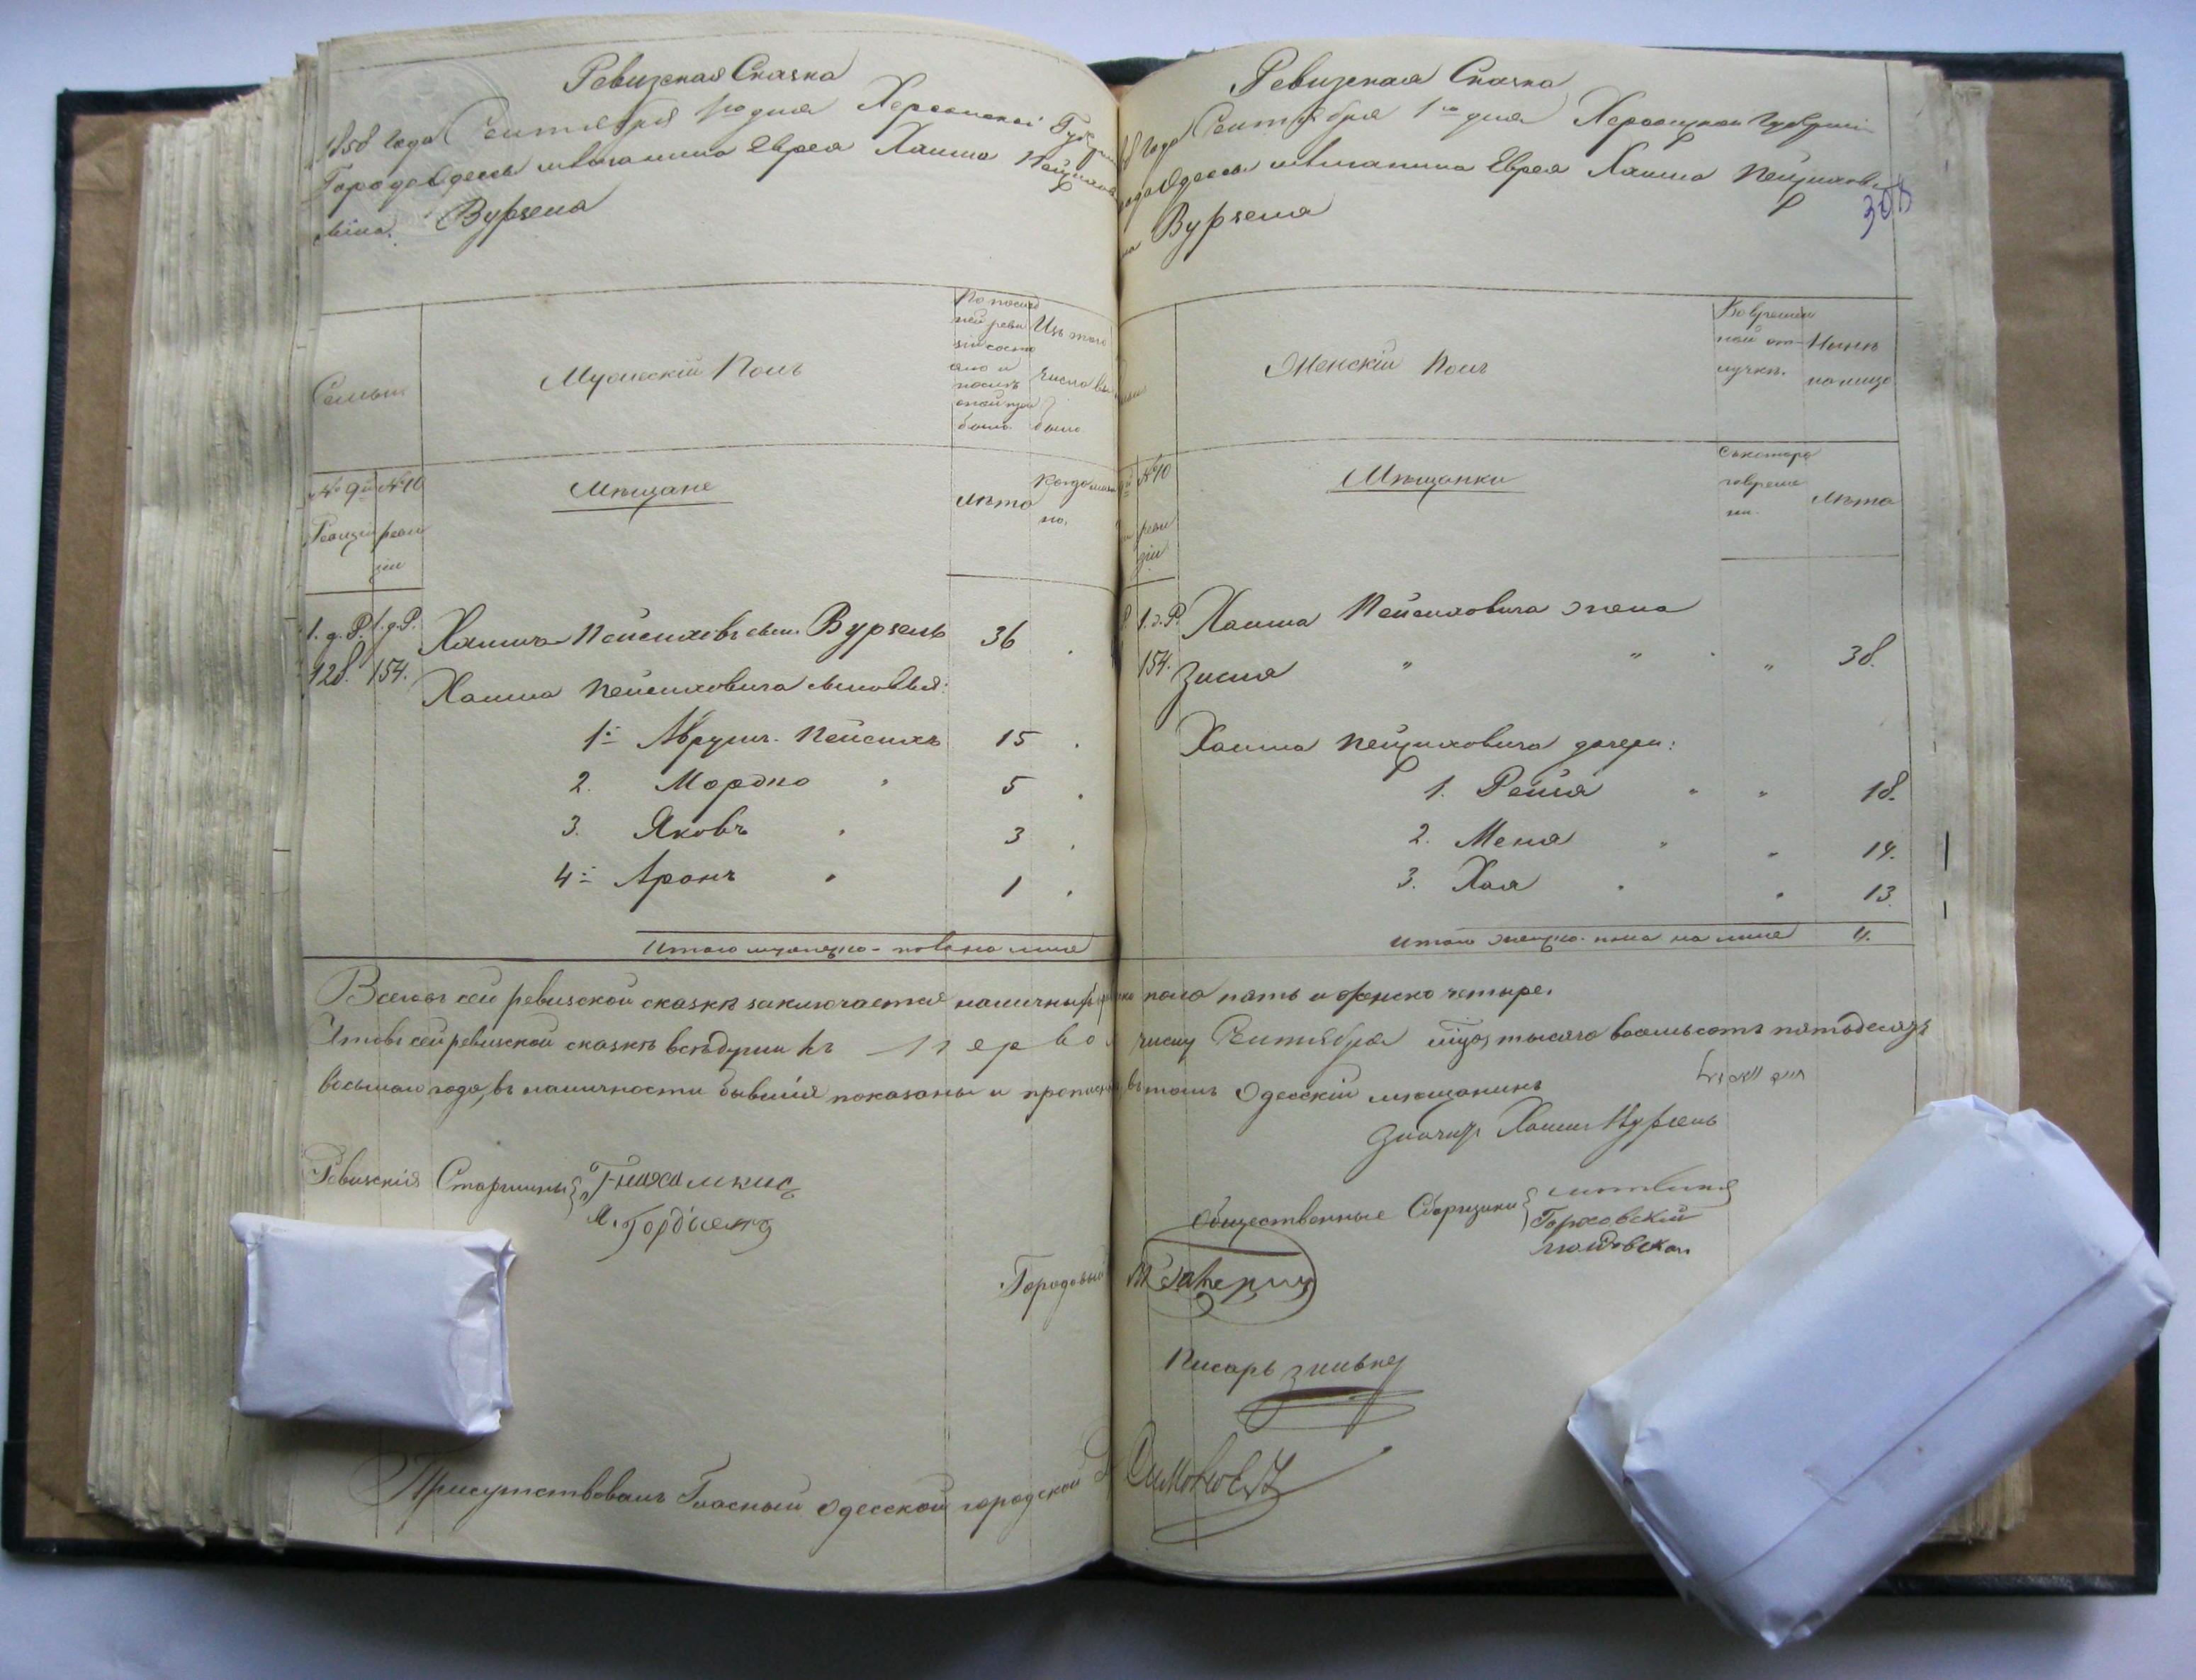 Ревизская Сказка
1858 года Сентября 1го дня Херсонской Губерніи
Города Одессы мещанина Еврея Хаима Пейсихова
сына. Вурзеля
Семьи
Мужескій Полъ
По послѣдней ревизіи состояло и послѣ оной прибыло
Изъ того числа выбыло
№ 9й Ревизіи
№ 10 ревизіи
Мѣщане
Лѣта
Когда именно.
1.g.Р. 1.g.Р. Хаимъ Пейсиховъ сынъ Вурзель 36
128. 154.
Хаима Пейсиховича сыновья:
1й Абрумъ-Пейсихъ 15
2. Мордко " 5
3. Яковъ " 3
4й Аронъ " 1
Итого мужеска-пола на лице
Всего въ сей ревизской сказкѣ заключается наличныхъ
Что въ сей ревизской сказкѣ всѣ души къ перво
восьмаго года, въ наличности бывшія показаны и
Ревизскія Старшины
Городовый
Присутствовалъ Гласный Одесской городской
Ревизская Сказка
года Сентября 1го дня Херсонской Губерніи
Одессы мещанина Еврея Хаима Пейсихова
Вурзеля
308
Женскій Полъ
Во временной отлучкѣ.
Нынѣ на лицо
№ 10 ревизіи
Мѣщанки
Съ котораго времени.
Лѣта
1.g.Р. Хаима Пейсиховича жена
154. Зисля " " " 38.
Хаима Пейсиховича дочери:
1. Рейзя " " 18.
2. Меня " " 14.
3. Хая " " 13.
Итого женска-пола на лице 4.
пола пять и женско четыре.
числу Сентября тысяча восемьсотъ пятьдесятъ
въ томъ Одесскій мещанинъ
Значитъ Хаимъ Вурзель
Общественные Сборщики
Горховскій
Писарь